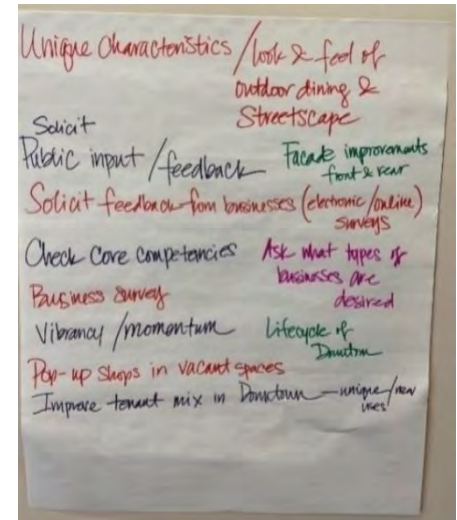 Unique Characteristics / look & feel of
outdoor dining &
Streetscape
Solicit
Public input / feedback
Facade improvements
front & rear
Solicit feedback from businesses (electronic/online)
surveys
Check Core Competencies
Ask what types of
businesses are
desired
Business survey
Vibrancy / momentum
Lifecycle of
Pop-up shops in vacant spaces
Improve tenant mix in Downtown — unique/new
uses